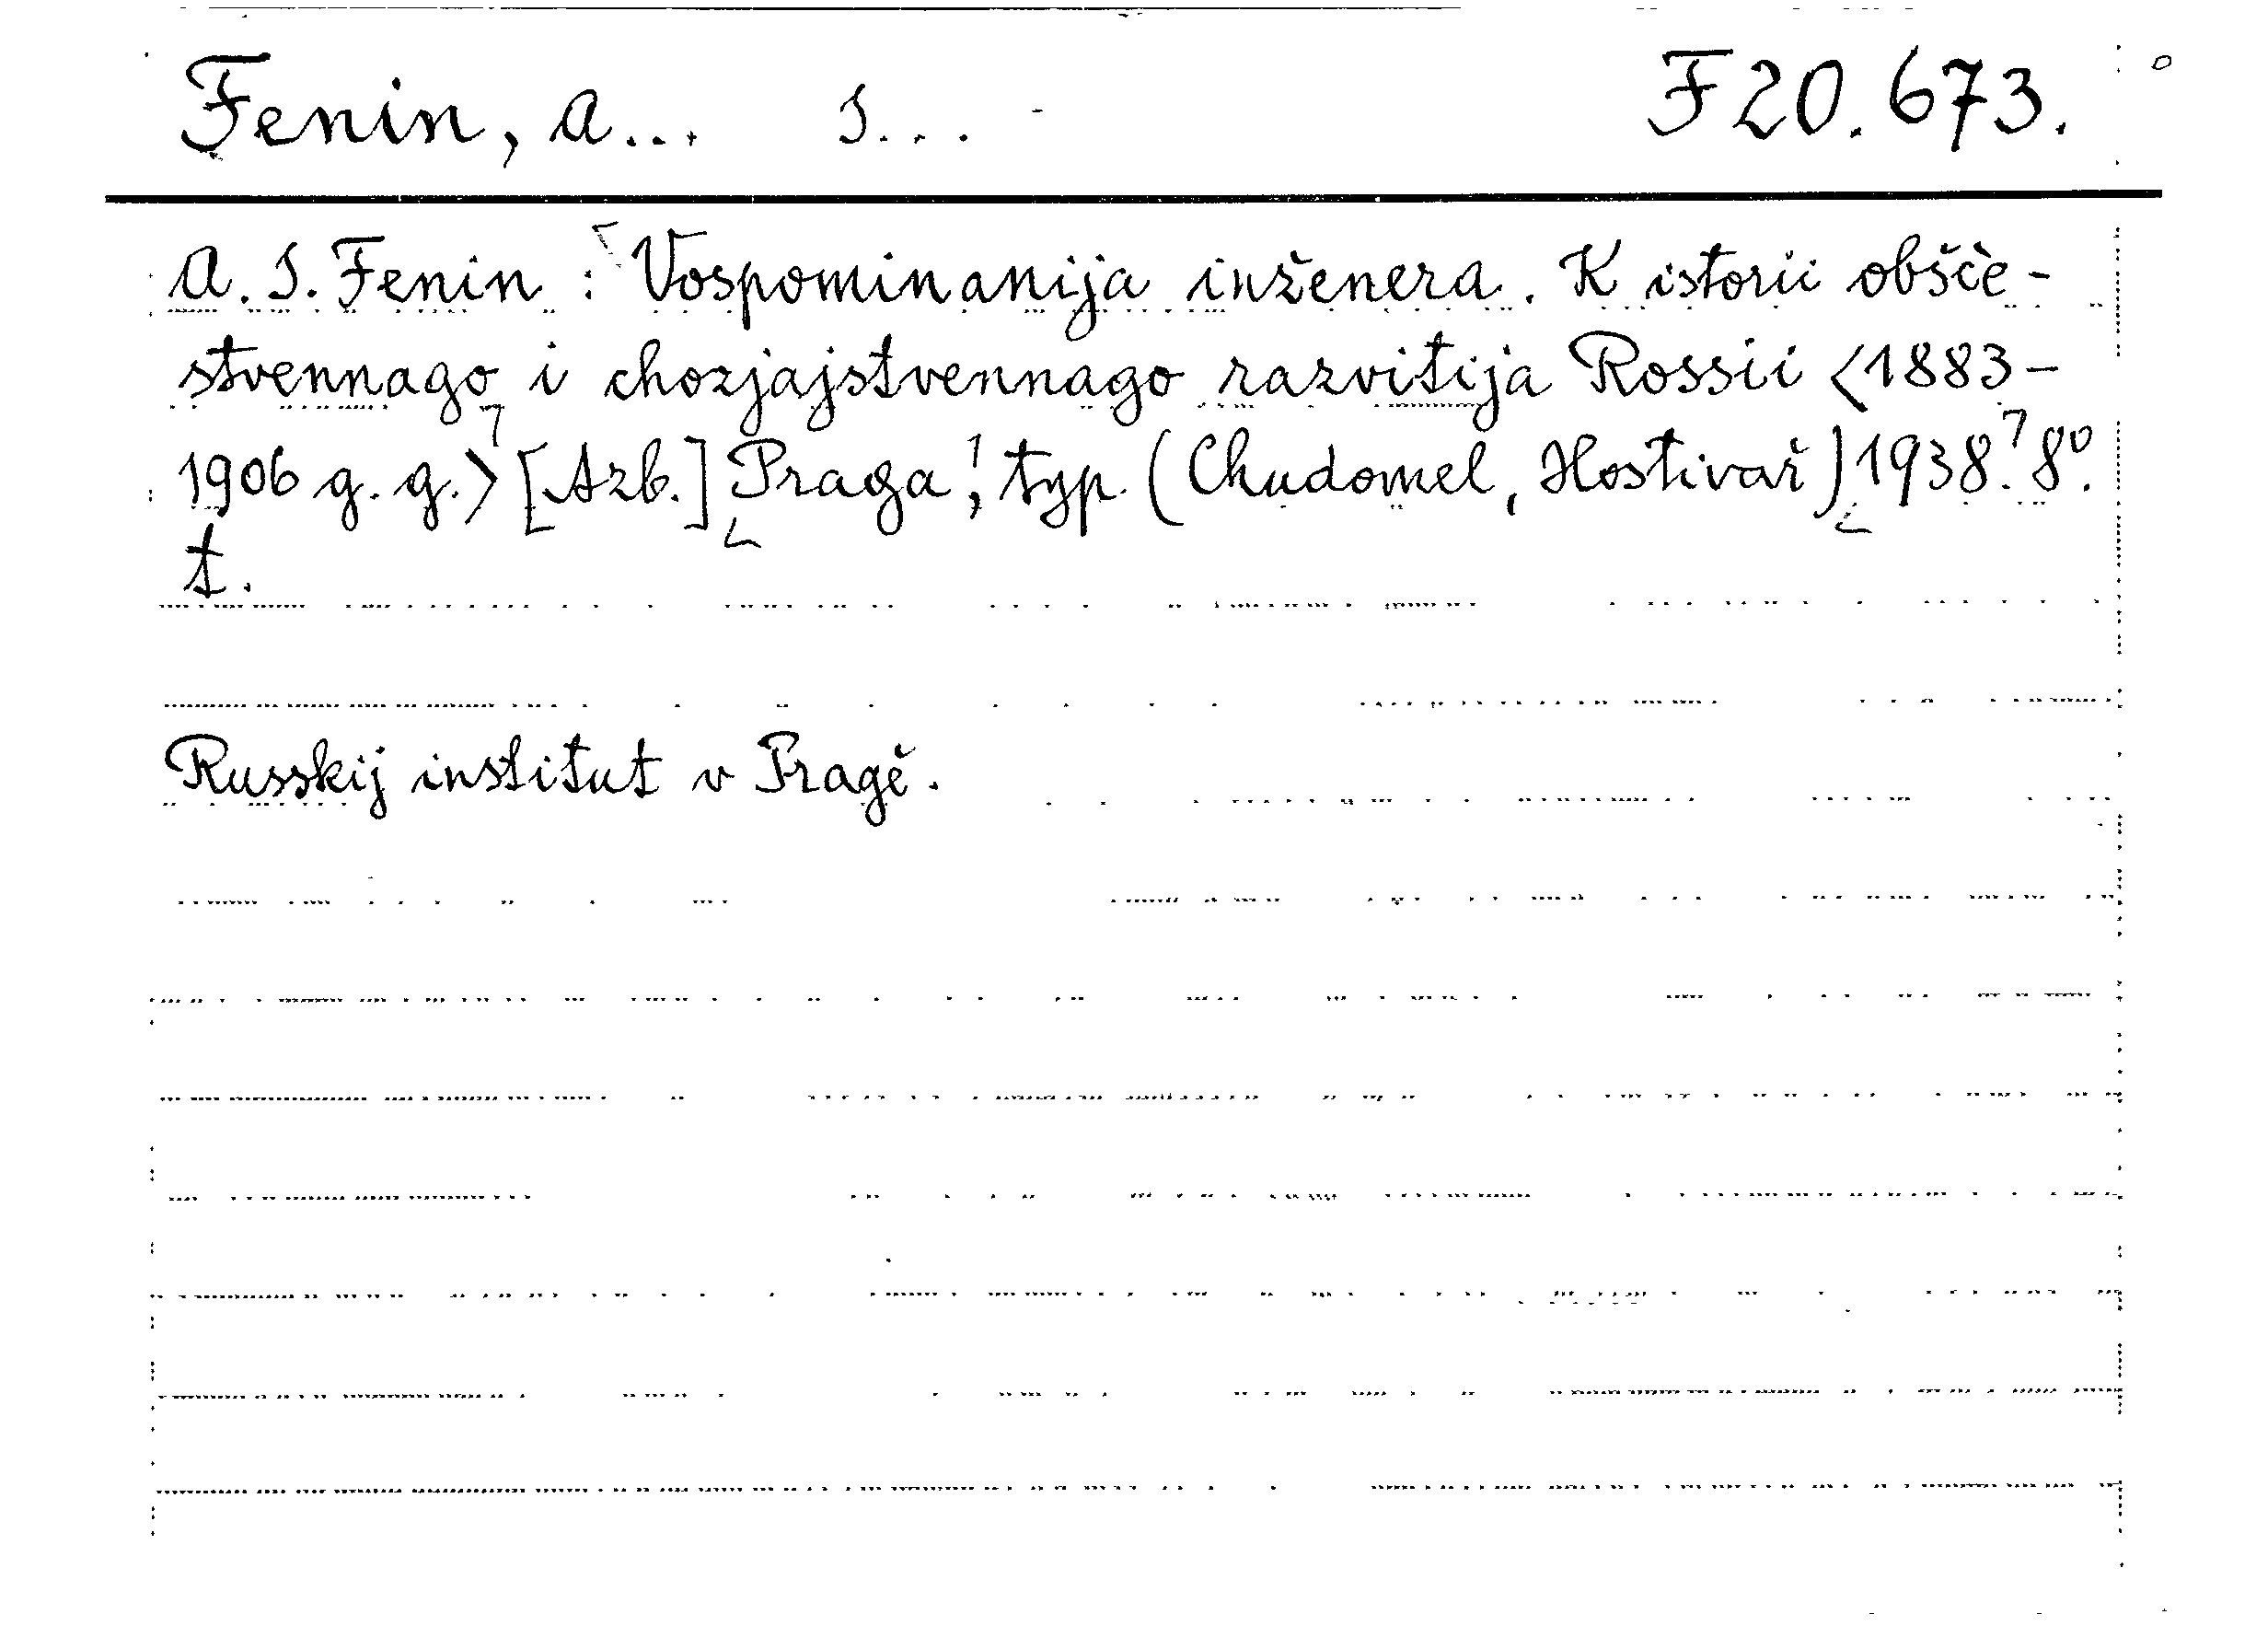 Fenin, A... I... F 20.673.
A. I. Fenin : Vospominanija inženera. K istorii obšče-
stvennago i chozjajstvennago razvitija Rossii <1883-
1906 g. g.> [Azb.] Praga, typ. (Chudomel, Hostivař) 1938. 8°.
t.
Russkij institut v Pragě.